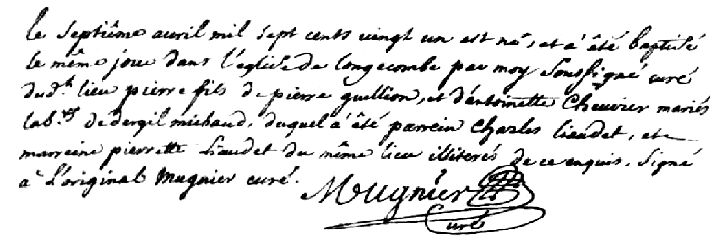 le septiême avril mil sept cents vingt un est né, et a été baptisé
le même jour dans l'eglise de longecombe par moy soussigné curé
dud.t lieu pierre fils de pierre guillion, et d'antoinette Cheuvrier mariés
lab.rs de dergil michaud, duquel a été parrein Charles liaudet, et
marreine pierrette Liaudet du même lieu illiterés de ce enquis. Signé
a L'original Mugnier curé.
Mugnier
curé